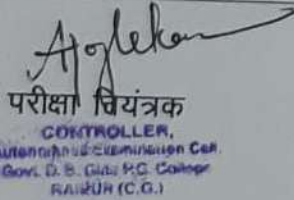 परीक्षा नियंत्रक
CONTROLLER,
Examination Cell.
Govt. D. B. Girls P.G. College
RAIPUR (C.G.)